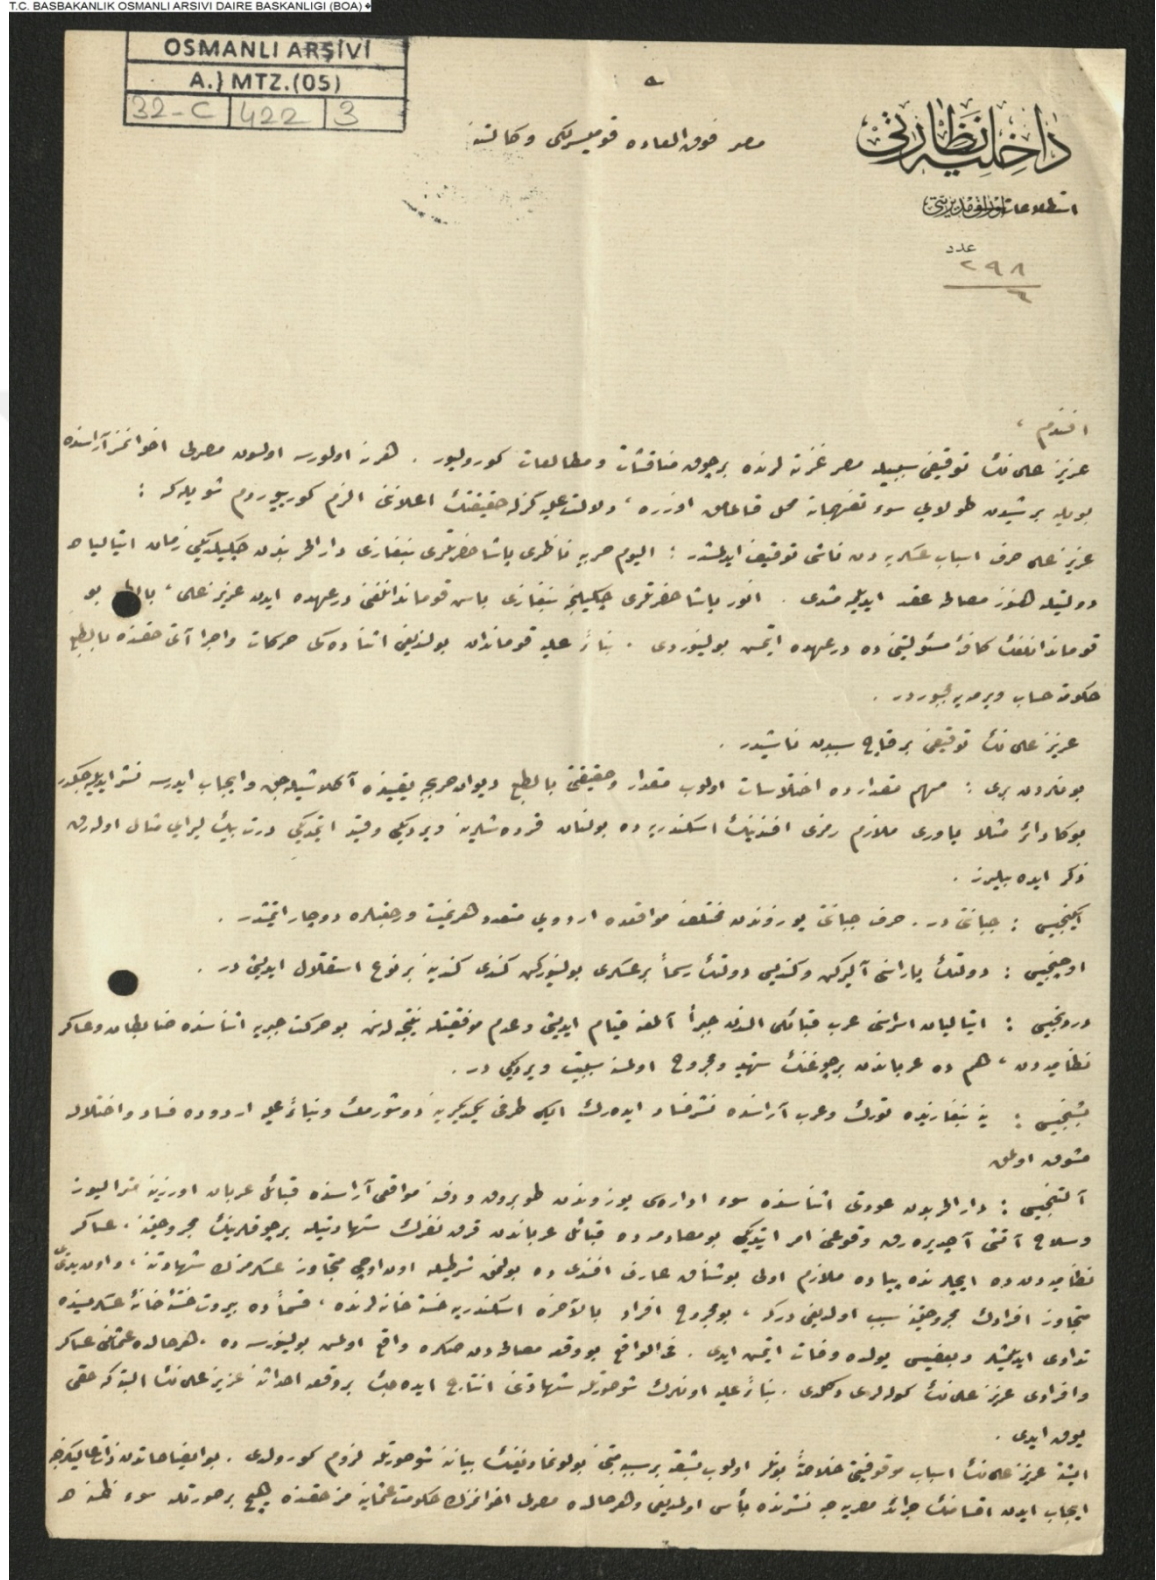 T.C. BASBAKANLIK OSMANLI ARSIVI DAIRE BASKANLIGI (BOA)
OSMANLI ARŞİVİ
A.} MTZ.(05)
32-C 422 3
داخلیه نظارتی
مصر فوق العاده قومیسرلكی وكالتنه
مدیریتی
عدد
٢٩٨
٦
افندم ،
عزیز علی نك توقیفی سببیله مصر غزته لرنده برچوق مناقشات و مطالعات كورولیور . هر نه اولورسه اولسون مصرلی اخوانمز آراسنده
بویله بر شیدن طولایی سوء تفهماته محل قالمامق اوزره ، دولت علیه كزله حقیقتك اعلاننی الزم كورییورم شویله كه :
عزیز علی صرف اسباب عسكریه دن ناشی توقیف ایدلمشدر : الیوم حربیه ناظری پاشا حضرتلری بنغازی دارالحربندن چكیلدیكی زمان ایتالیا
دولتیله هنوز مصالحه عقد ایدیلمه مشدی . انور پاشا حضرتلری چكیلنجه بنغازی باش قوماندانلغنی درعهده ایدن عزیز علی ، بو
قوماندانلغك كافه مسئولیتنی ده درعهده ایتمش بولنیوردی . بناءً علیه قوماندان بولندیغی اثناده كی حركات و اجراآتی حقنده بالطبع
حكومته حساب ویرمه یه مجبوردر .
عزیز علی نك توقیفی بر قاچ سببدن ناشیدر .
بونلردن بری : مهم مقدارده اختلاسات اولوب مقدار و حقیقتی بالطبع دیوان حربجه آكلاشیله جق و ایجاب ایدرسه نشر ایدیله جكدر
بوكا دائر مثلا یاوری ملازم رمزی افندینك اسكندریه ده بولنان قرده شلرینه ویردیكی و قید ایتمدیكی درت بیك لیرایی مثال اوله رق
ذكر ایده بیلیرز .
ایكنجیسی : جبانتی در . صرف جبانتی یوزوندن مختلف مواقعده اردویی متعدد هزیمت و رجعتلره دوچار ایتمشدر .
اوچنجیسی : دولتك پاراسنی آلیركن و كندیسی دولتك رسماً بر عسكری بولنیوركن كندی كندینه بر نوع استقلال ایدیشی در .
دردنجیسی : ایتالیان اسراسنی عرب قبائلی الندن جبراً آلمغه قیام ایدیشی و عدم موفقیتله نتیجه لنن بو حركت جبریه اثناسنده ضابطان و عساكر
نظامیه دن ، هم ده عرباندن برچوغنك شهید و مجروح اولمسنه سببیت ویردیكی در .
بشنجیسی : ینه بنغازیده تورك و عرب آراسنده نشر فساد ایده رك ایكی طرفی یكدیكرینه دوشورمك و بناءً علیه اردوده فساد و اختلاله
مشوق اولمق
آلتنجیسی : دارالحربدن عودتی اثناسنده سوء اداره سی یوزوندن طوبروق و دفنه مواقعی آراسنده قبائل عربان اوزرینه مترالیوز
و سلاح آتشی آچدیره رق وقوعنی امر ایتدیكی بو مصادمه ده قبائل عرباندن قرق نفرك شهادتیله برچوقلرینك مجروحیتنه . عساكر
نظامیه دن ده ایچلرنده پیاده ملازم اولی بوشناق عارف افندی ده بولنمق شرطیله اون اوچی متجاوز عسكرمزك شهادتنه ، و اون یدی یی
متجاوز افرادك مجروحیتنه سبب اولدیغی دركه ، بو مجروح افراد بالآخره اسكندریه خسته خانه لرنده ، قسماً ده بیروت خسته خانه عسكریسنده
تداوی ایدلمشلر و بعضیسی یولده وفات ایتمش ایدی . فی الواقع بو وقعه مصالحه دن صكره واقع اولمش بولنیورسه ده . هر حالده عثمانلی عساكر
و افرادی عزیز علی نك كوله لری دكلدی . بناءً علیه اونلرك شو صورتله شهادتنی انتاج ایده جك بر وقعه احداثنه عزیز علی نك البته كه حقی
یوق ایدی .
ایشته عزیز علی نك اسباب موقوفیتی خلاصةً بونلر اولوب بشقه بر سبب مبنی بولونمادیغنك بیاننه شو صورتله لزوم كورولدی . بو ایضاحاتدن ذات عالیلرنجه
ایجاب ایدن اقسامنك جرائد مصریه جه نشرنده بأس اولمدیغی و هر حالده مصرلی اخوانمزك حكومت عثمانیه مز حقنده هیچ بر صورتله سوء ظننه